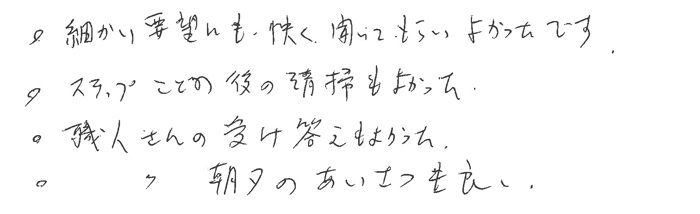 。細かい要望にも、快く聞いてもらいよかったです.
。ステップごとの後の清掃もよかった.
。職人さんの受け答えもよかった.
。　〃　朝夕のあいさつも良い.